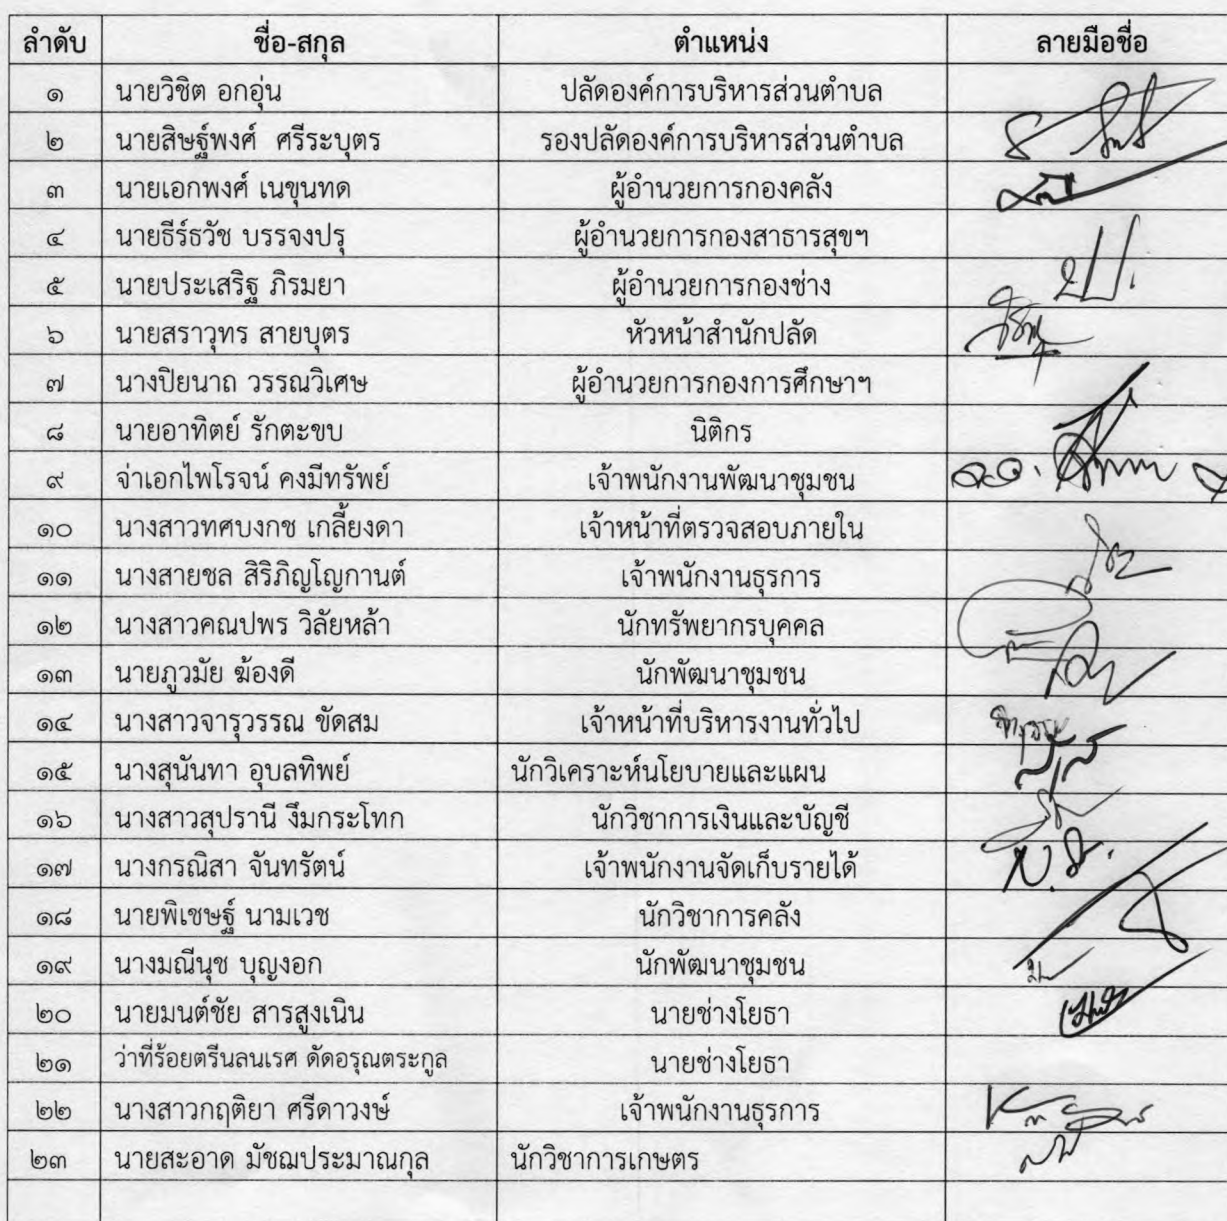 ลำดับ ชื่อ-สกุล ตำแหน่ง ลายมือชื่อ
๑ นายวิชิต อกอุ่น ปลัดองค์การบริหารส่วนตำบล
๒ นายสิษฐ์พงศ์ ศรีระบุตร รองปลัดองค์การบริหารส่วนตำบล
๓ นายเอกพงศ์ เนขุนทด ผู้อำนวยการกองคลัง
๔ นายธีร์ธวัช บรรจงปรุ ผู้อำนวยการกองสาธารสุขฯ
๕ นายประเสริฐ ภิรมยา ผู้อำนวยการกองช่าง
๖ นายสราวุทร สายบุตร หัวหน้าสำนักปลัด
๗ นางปิยนาถ วรรณวิเศษ ผู้อำนวยการกองการศึกษาฯ
๘ นายอาทิตย์ รักตะขบ นิติกร
๙ จ่าเอกไพโรจน์ คงมีทรัพย์ เจ้าพนักงานพัฒนาชุมชน
๑๐ นางสาวทศบงกช เกลี้ยงดา เจ้าหน้าที่ตรวจสอบภายใน
๑๑ นางสายชล สิริภิญโญกานต์ เจ้าพนักงานธุรการ
๑๒ นางสาวคณปพร วิลัยหล้า นักทรัพยากรบุคคล
๑๓ นายภูวมัย ฆ้องดี นักพัฒนาชุมชน
๑๔ นางสาวจารุวรรณ ขัดสม เจ้าหน้าที่บริหารงานทั่วไป
๑๕ นางสุนันทา อุบลทิพย์ นักวิเคราะห์นโยบายและแผน
๑๖ นางสาวสุปรานี งึมกระโทก นักวิชาการเงินและบัญชี
๑๗ นางกรณิสา จันทรัตน์ เจ้าพนักงานจัดเก็บรายได้
๑๘ นายพิเชษฐ์ นามเวช นักวิชาการคลัง
๑๙ นางมณีนุช บุญงอก นักพัฒนาชุมชน
๒๐ นายมนต์ชัย สารสูงเนิน นายช่างโยธา
๒๑ ว่าที่ร้อยตรีนลนเรศ ดัดอรุณตระกูล นายช่างโยธา
๒๒ นางสาวกฤติยา ศรีดาวงษ์ เจ้าพนักงานธุรการ
๒๓ นายสะอาด มัชฌประมาณกุล นักวิชาการเกษตร